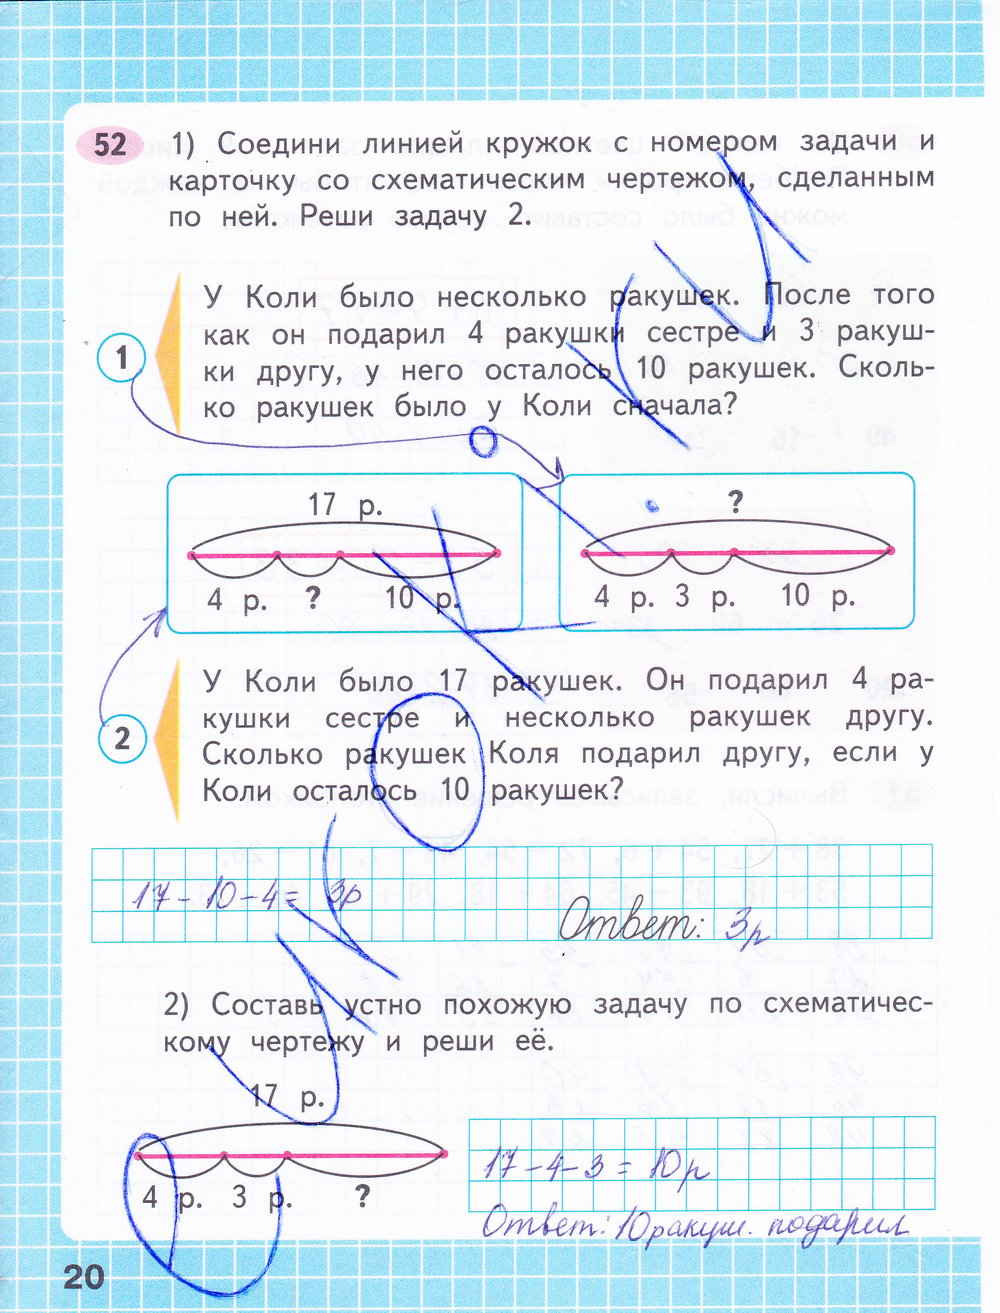 52 1) Соедини линией кружок с номером задачи и
карточку со схематическим чертежом, сделанным
по ней. Реши задачу 2.
1
У Коли было несколько ракушек. После того
как он подарил 4 ракушки сестре и 3 ракуш-
ки другу, у него осталось 10 ракушек. Сколь-
ко ракушек было у Коли сначала?
17 р.
4 р. ? 10 р.
?
4 р. 3 р. 10 р.
2
У Коли было 17 ракушек. Он подарил 4 ра-
кушки сестре и несколько ракушек другу.
Сколько ракушек Коля подарил другу, если у
Коли осталось 10 ракушек?
17 - 10 - 4 = 3р
Ответ: 3р
2) Составь устно похожую задачу по схематичес-
кому чертежу и реши её.
17 р.
4 р. 3 р. ?
17 - 4 - 3 = 10р
Ответ: 10 ракуш. подарил
20